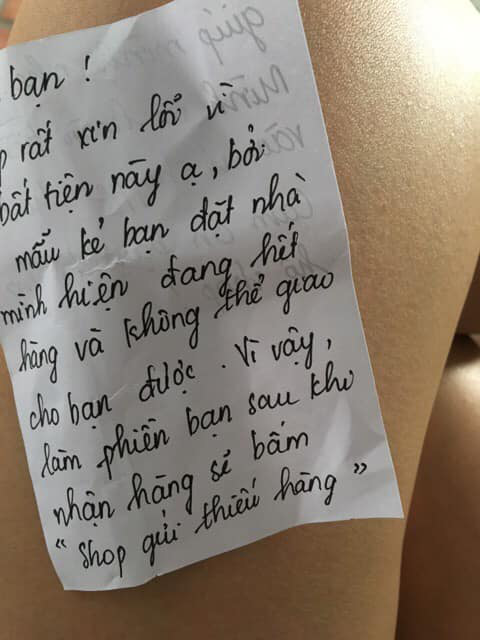 bạn !
rất xin lỗi vì
bất tiện này ạ, bởi
mẫu kẻ bạn đặt nhà
mình hiện đang hết
hàng và không thể giao
cho bạn được. Vì vậy,
làm phiền bạn sau khi
nhận hàng sẽ bấm
“ shop gửi thiếu hàng ”
giúp mình
Mình